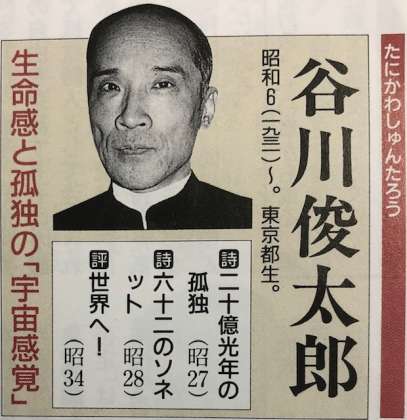 たにかわしゅんたろう
谷川俊太郎
昭和6（一九三一）〜。東京都生。
詩二十億光年の
孤独（昭27）
詩六十二のソネ
ット（昭28）
評世界へ！
（昭34）
生命感と孤独の「宇宙感覚」